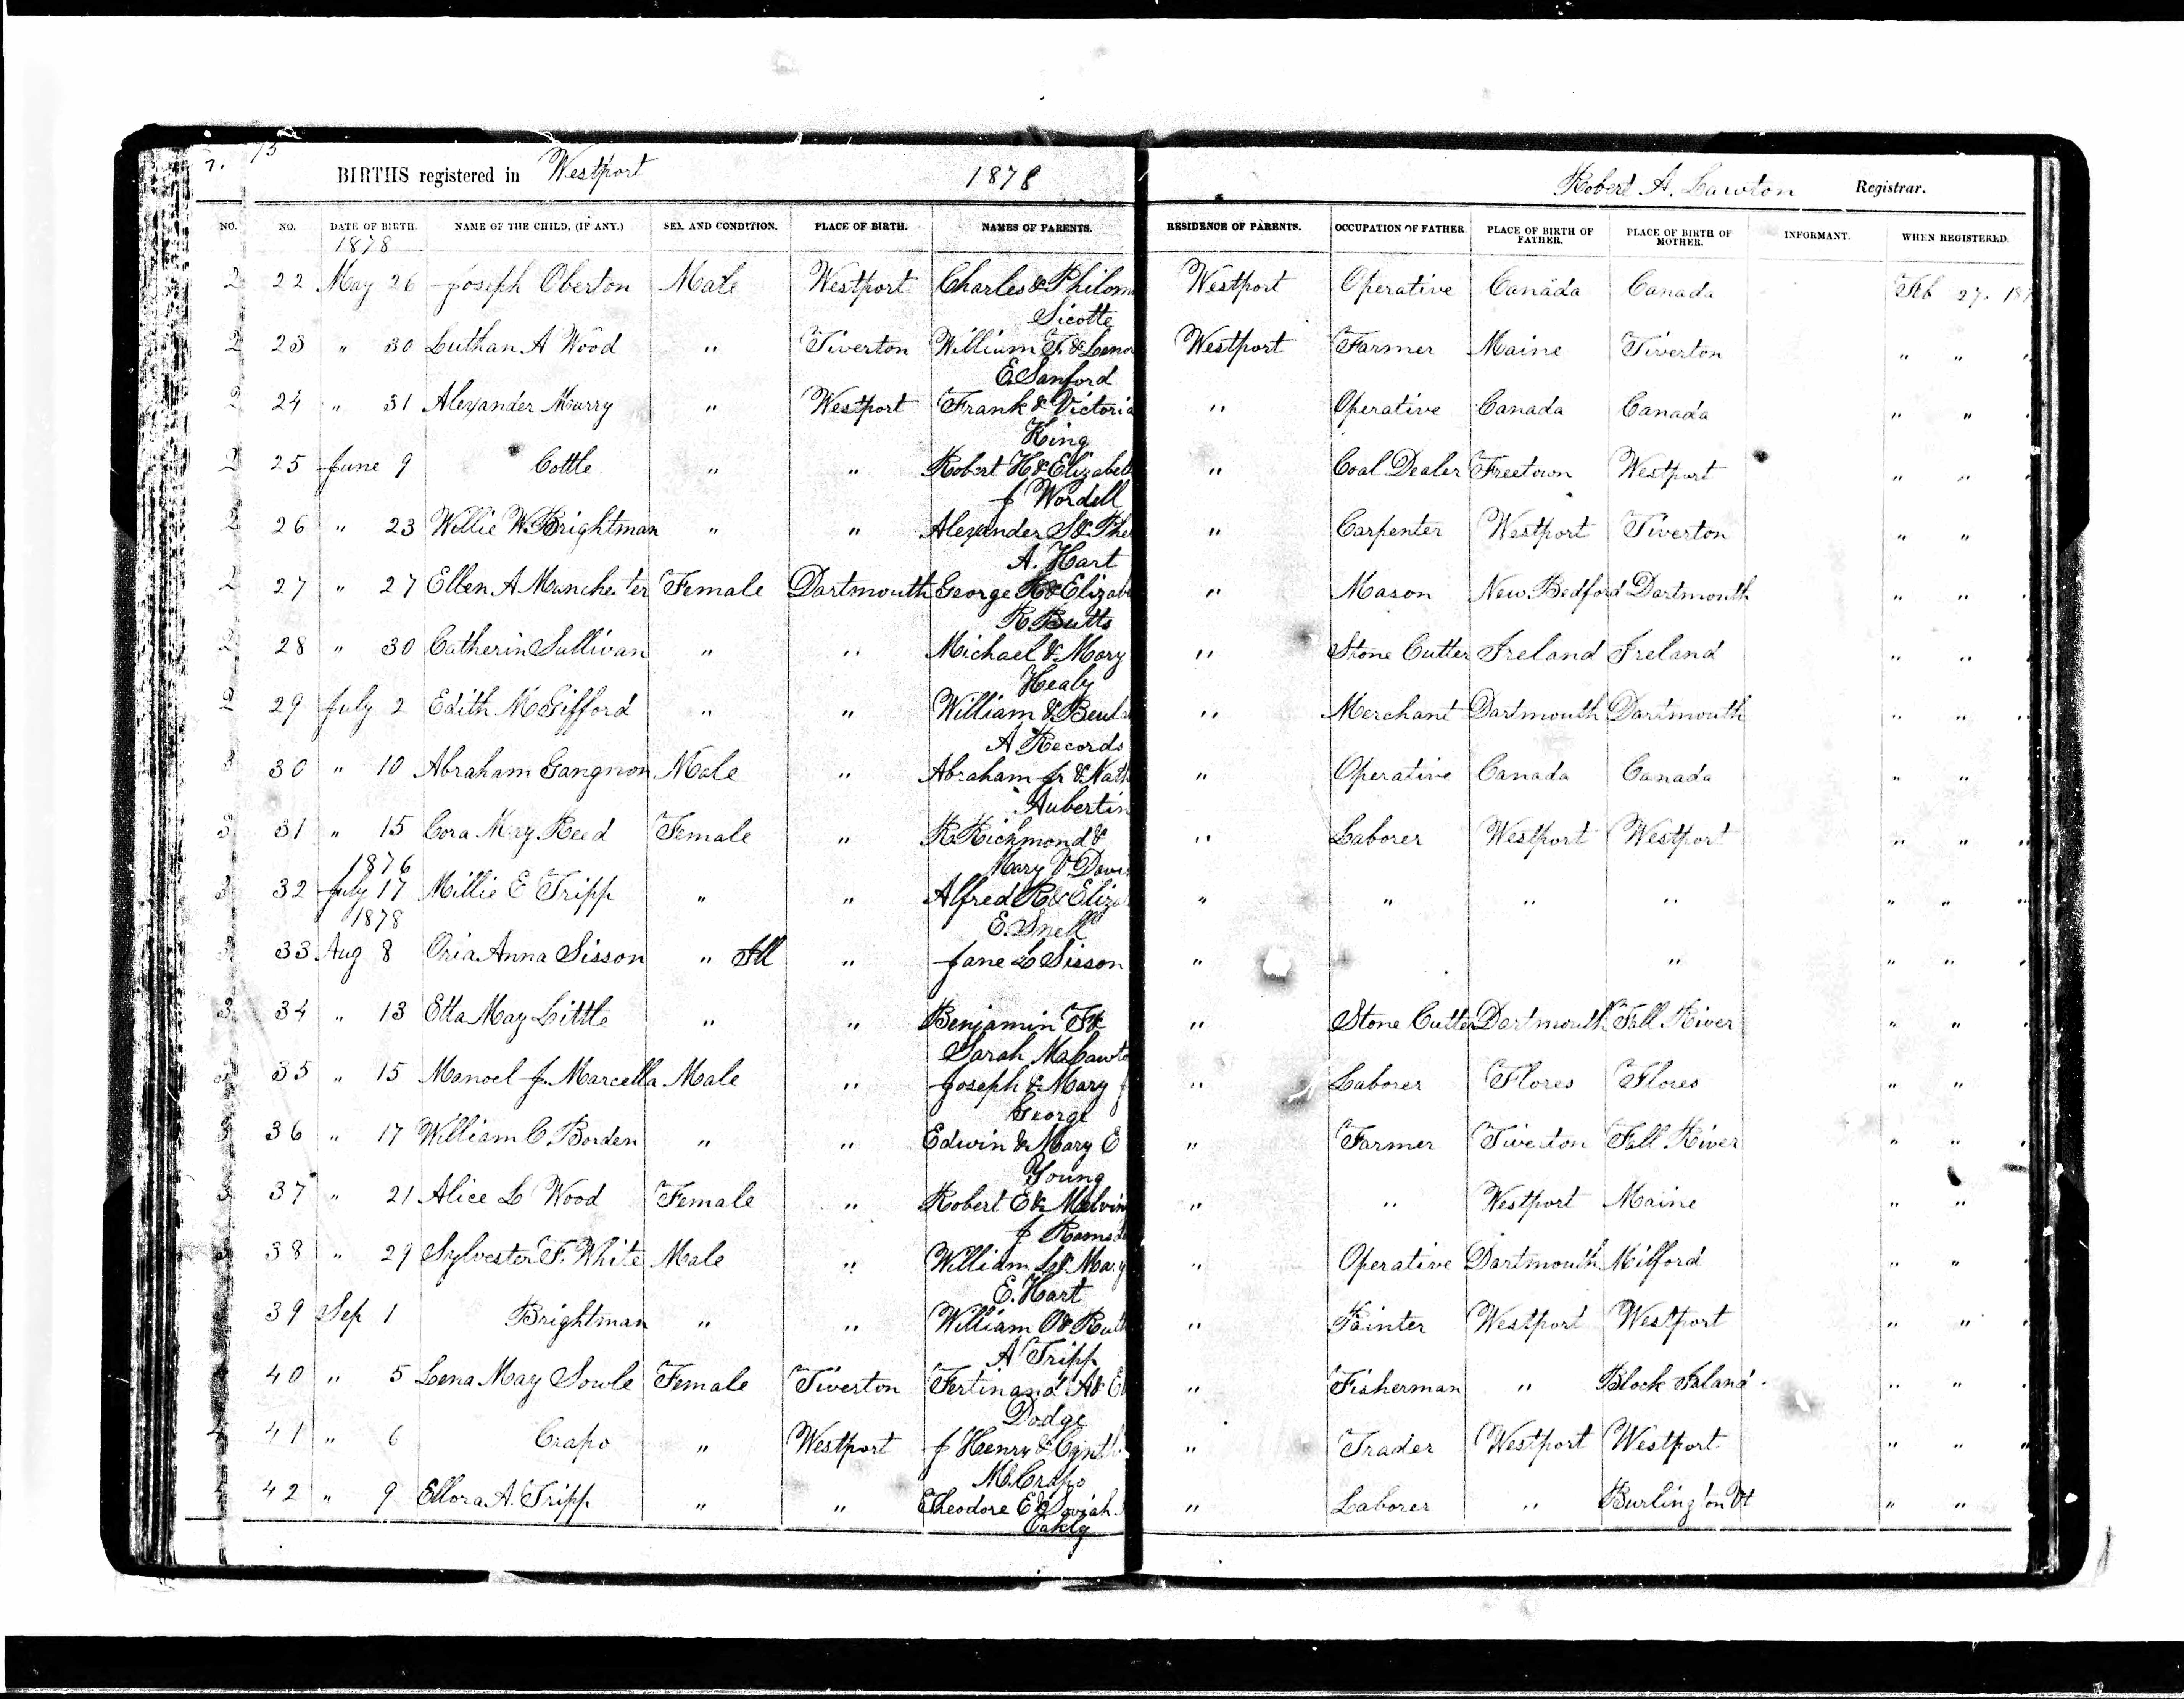 7. 13
BIRTHS registered in Westport 1878 Robert A. Lawton Registrar.
NO. NO. DATE OF BIRTH. NAME OF THE CHILD, (IF ANY.) SEX AND CONDITION. PLACE OF BIRTH. NAMES OF PARENTS. RESIDENCE OF PARENTS. OCCUPATION OF FATHER. PLACE OF BIRTH OF FATHER. PLACE OF BIRTH OF MOTHER. INFORMANT. WHEN REGISTERED.
1878
2 22 May 26 Joseph Oberton Male Westport Charles & Philom Westport Operative Canada Canada Feb 27. 187
Sicotte
2 23 " 30 Luthan A Wood " Tiverton William F. & Lenor Westport Farmer Maine Tiverton " "
E. Sanford
2 24 " 31 Alexander Murry " Westport Frank & Victoria " Operative Canada Canada " "
King
2 25 June 9 Cottle " " Robert H & Elizabeth " Coal Dealer Freetown Westport " "
J Wordell
2 26 " 23 Willie W. Brightman " " Alexander S & Phe " Carpenter Westport Tiverton " "
A. Hart
2 27 " 27 Ellen A Manchester Female Dartmouth George H & Elizabe " Mason New Bedford Dartmouth " "
R Butts
2 28 " 30 Catherin Sullivan " " Michael & Mary " Stone Cutter Ireland Ireland " "
Healy
2 29 July 2 Edith M Gifford " " William & Beula " Merchant Dartmouth Dartmouth " "
A Records
3 30 " 10 Abraham Gangnon Male " Abraham Jr & Nath " Operative Canada Canada " "
Aubertin
3 31 " 15 Cora May Reed Female " R Richmond & " Laborer Westport Westport " "
1876 Mary V Davi
3 32 July 17 Millie E Tripp " " Alfred R & Eliza " " " " " "
1878 E. Snell
3 33 Aug 8 Oria Anna Sisson " Ill " Jane L Sisson " " " "
3 34 " 13 Etta May Little " " Benjamin F & " Stone Cutter Dartmouth Fall River " "
Sarah M Lawto
3 35 " 15 Manoel J. Marcella Male " Joseph & Mary J " Laborer Flores Flores " "
George
3 36 " 17 William C. Borden " " Edwin & Mary E " Farmer Tiverton Fall River " "
Young
3 37 " 21 Alice L Wood Female " Robert E & Melvin " " Westport Maine " "
J Ramsd
3 38 " 29 Sylvester F. White Male " William L & Mary " Operative Dartmouth Milford " "
E. Hart
39 Sep 1 Brightman " " William O & Ruth " Painter Westport Westport " "
A Tripp
40 " 5 Lena May Sowle Female Tiverton Fertinand A & El " Fisherman " Block Island " "
Dodge
4 41 " 6 Crapo " Westport J Henry & Cynthi " Trader Westport Westport " "
M. Crapo
4 42 " 9 Ellora A. Tripp " " Theodore E & " Laborer " Burlington Vt " "
Oakly